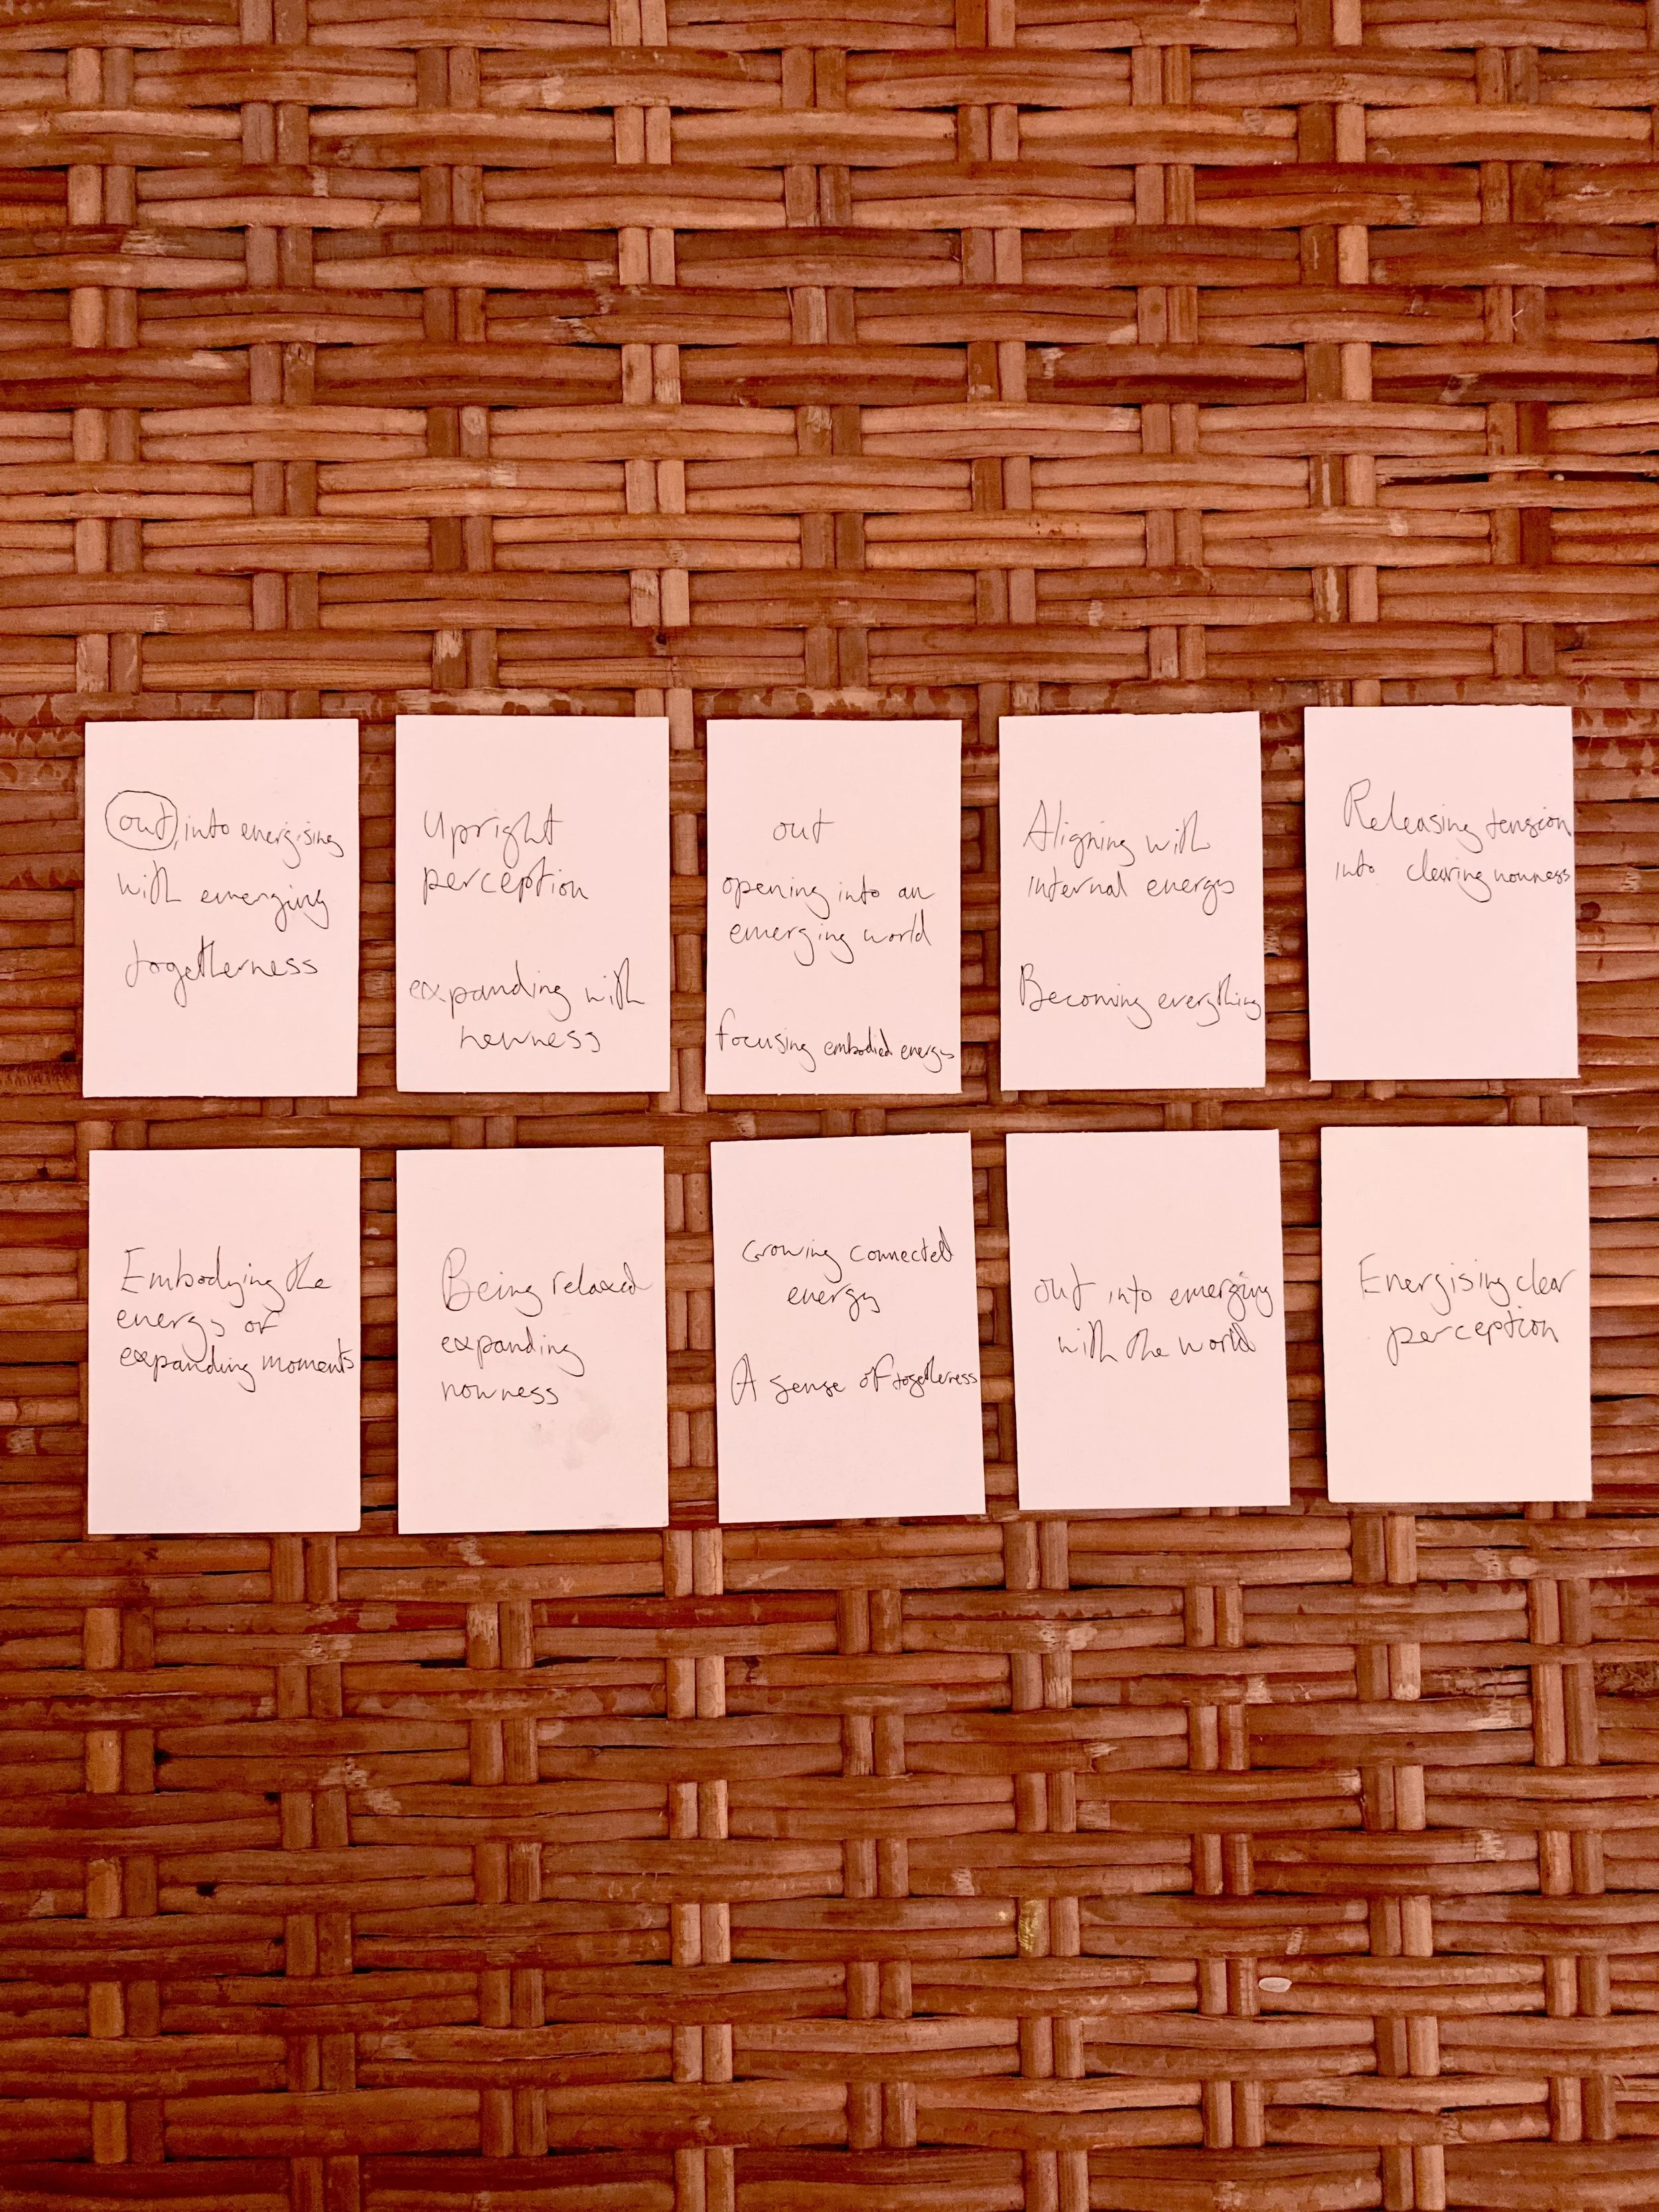 out, into energising
with emerging
togetherness
Upright
perception
expanding with
newness
out
opening into an
emerging world
focusing embodied energy
Aligning with
internal energy
Becoming everything
Releasing tension
into clearing nowness
Embodying the
energy of
expanding moments
Being relaxed
expanding
nowness
Growing connected
energy
A sense of togetherness
out into emerging
with the world
Energising clear
perception